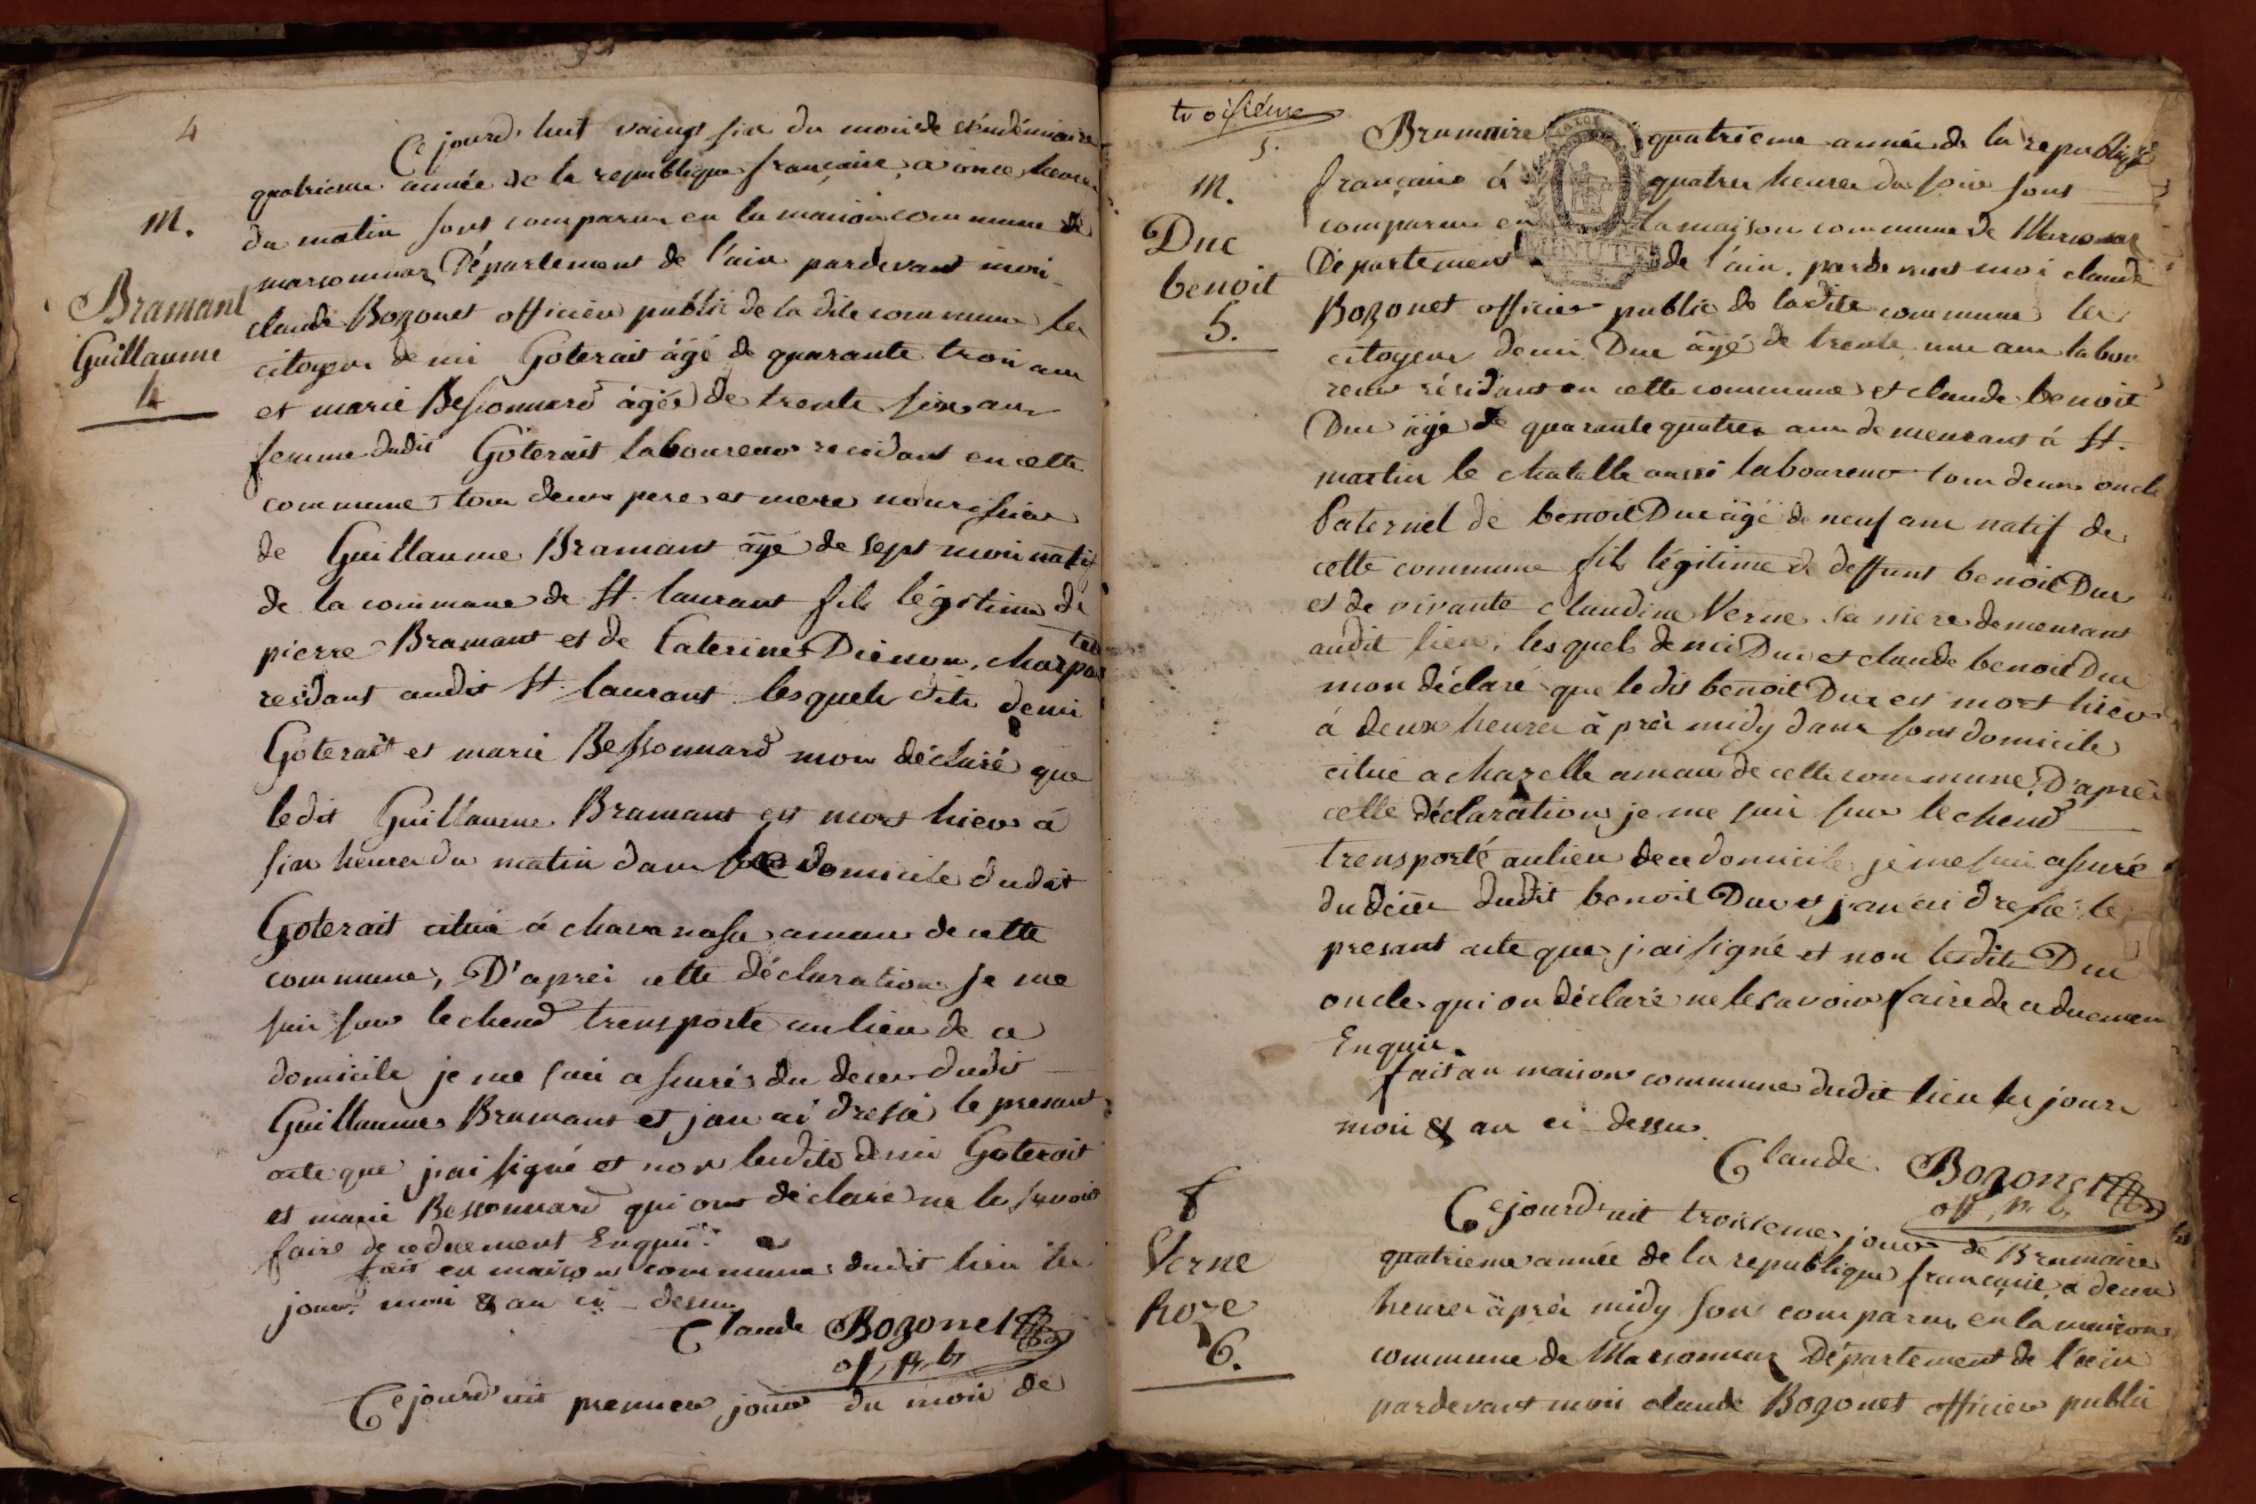 4
Ce jourd'huit vaingt six du mois de vendémiaire
quatrieme année de la republique française, a onze heures
du matin sont comparus en la maison commune de
marsonnaz Département de l'ain pardevant moi
claude Bozonet officier public de la dite commune les
citoyens denis Goterait âgé de quarante trois ans
et marie Bessonnard âgée de trente six ans
femme dudit Goterait laboureur residant en cette
commune tous deux pere et mere nourissier
de Guillaume Bramant âgé de sept mois natif
de la commune de St. laurant fils légitime de
pierre Bramant et de Caterine Dienon, charpantier
residant audit St. laurant lesquels dits denis
Goterait et marie Bessonnard mon déclaré que
ledit Guillaume Bramant est mort hier à
six heures du matin dans le domicile dudit
Goterait citué à chavanasse amau de cette
commune, D'aprés cette déclaration je me
suis sur lechend transporté au lieu de ce
domicile je me suis assuré du décés dudit
Guillaume Bramant et jan ai dressé le presant
acte que j'ai signé et non lesdits denis Goterait
et marie Bessonnard qui ont déclaré ne le savoir
faire de ce duement Enquis.
fait en maison commune dudit lieu les
jour mois & an ci-dessus
Claude Bozonet
off. p. b.
Ce jourd'uit premier jour du mois de
m.
Bramant
Guillaume
4
troisiéme
5.
Brumaire quatriéme année de la republique
française à quatres heures du soir sont
comparus en la maison commune de Marsonnaz
Département de l'ain. pardevant moi claude
Bozonet officier public de ladite commune les
citoyens denis Duc âgé de trente un ans labou
reur résidant en cette commune et claude benoit
Duc âgé de quarante quatres ans demeurant à St.
martin le chatelle aussi laboureur tous deux oncle
Paternel de benoit Duc âgé de neuf ans natif de
cette commune fils légitime de deffunt benoit Duc
et de vivante claudine Verne sa mere demeurant
audit lieu, lesquels denis Duc et claude benoit Duc
mon déclaré que ledit benoit Duc est mort hier
à deux heures àprés midy dans sont domicile
citué a chazelle amau de cette commune, D'aprés
cette déclaration je me suis sur lechend
transporté au lieu de ce domicile je me suis assuré
du décés dudit benoit Duc et j'an ai dressé le
presant acte que j'ai signé et non lesdits Duc
oncles qui on déclaré ne le savoir faire de ce duemen
Enquis.
fait an maison commune dudit lieu les jour
mois & an ci-dessus.
Claude Bozonet
off. p. b.
Ce jourd'uit troisieme jour de Brumaire
quatrieme année de la republique française, a deux
heures àprés midy son comparus en la maison
commune de Marsonnaz Département de l'ain
pardevant moi claude Bozonet officier public
m.
Duc
benoit
5.
f
Verne
Roze
6.
MINUTE